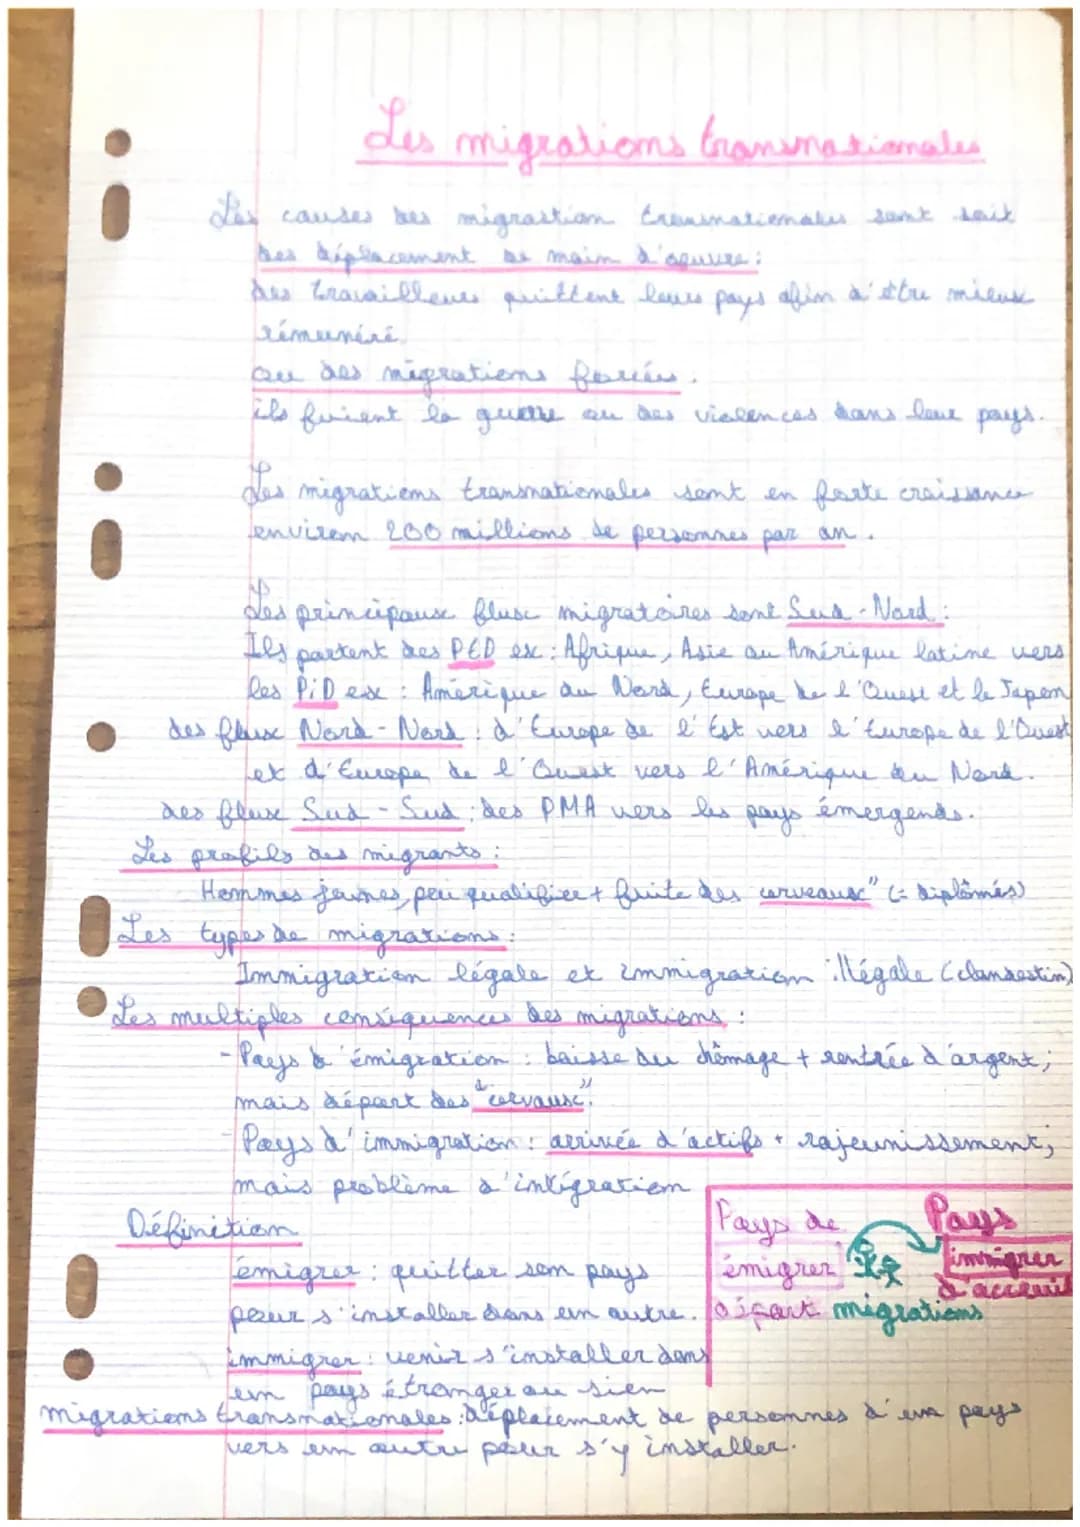 Les migrations transnationales
Les causes des migrastion transnationales sont soit
des déplacement de main d'oeuvre :
des travailleurs quittent leurs pays afin d'être mieux
rémunéré.
ou des migrations forcées.
ils fuient la guerre ou des violences dans leur pays.
Les migrations transnationales sont en forte croissance
environ 200 millions de personnes par an.
Les principaux flux migratoires sont Sud-Nord :
Ils partent des PED ex : Afrique, Asie ou Amérique latine vers
les PiD ex : Amérique du Nord, Europe de l'Ouest et le Japon
des flux Nord-Nord : d'Europe de l'Est vers l'Europe de l'Ouest
et d'Europe de l'Ouest vers l'Amérique du Nord.
des flux Sud-Sud : des PMA vers les pays émergends.
Les profils des migrants :
Hommes jeunes, peu qualifier + fuite des cerveaux" (= diplômés)
Les types de migrations :
Immigration légale et immigration illégale (clandestin)
Les multiples conséquences des migrations :
- Pays d'émigration : baisse du chômage + rentrée d'argent ;
mais départ des "cerveaux".
- Pays d'immigration : arrivée d'actifs + rajeunissement ;
mais problème d'intégration
Définition
émigrer : quitter son pays
pour s'installer dans un autre.
immigrer : venir s'installer dans
un pays étranger au sien
migrations transnationales : déplacement de personnes d'un pays
vers un autre pour s'y installer.
Pays de
émigrer
départ
migrations
Pays
immigrer
d'acceuil